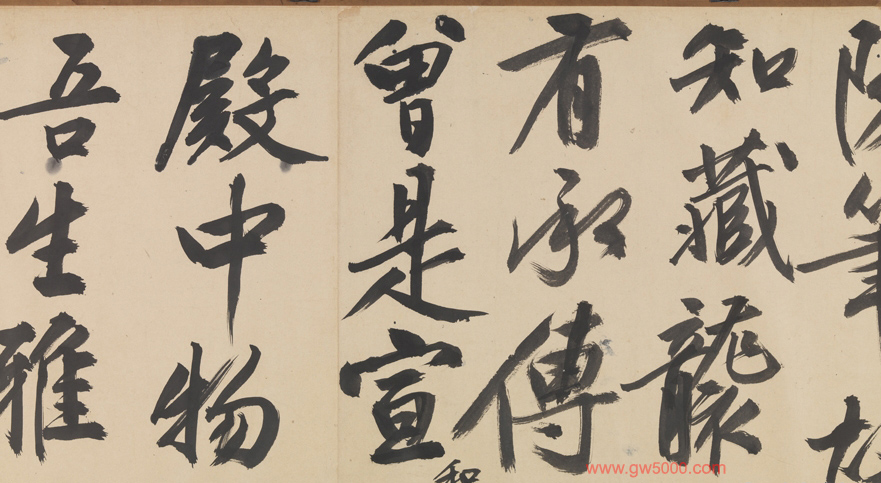 院筆
知藏龍
有承傳
曾是宣
和
殿中物
吾生雅
www.gw5000.com